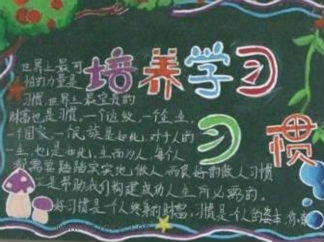 培养学习
习惯
世界上最可
怕的力量是
习惯,世界上最宝贵的
财富也是习惯,一个边,一个企业,
一个国家,一个民族是如此,对于人的
一生,也是如此,生而为人,每个人
都需要踏踏实实地做人,而良好的做人习惯
是帮助我们构建成功人生所必需的。
好习惯是一个人终身的财富,习惯是一个人的